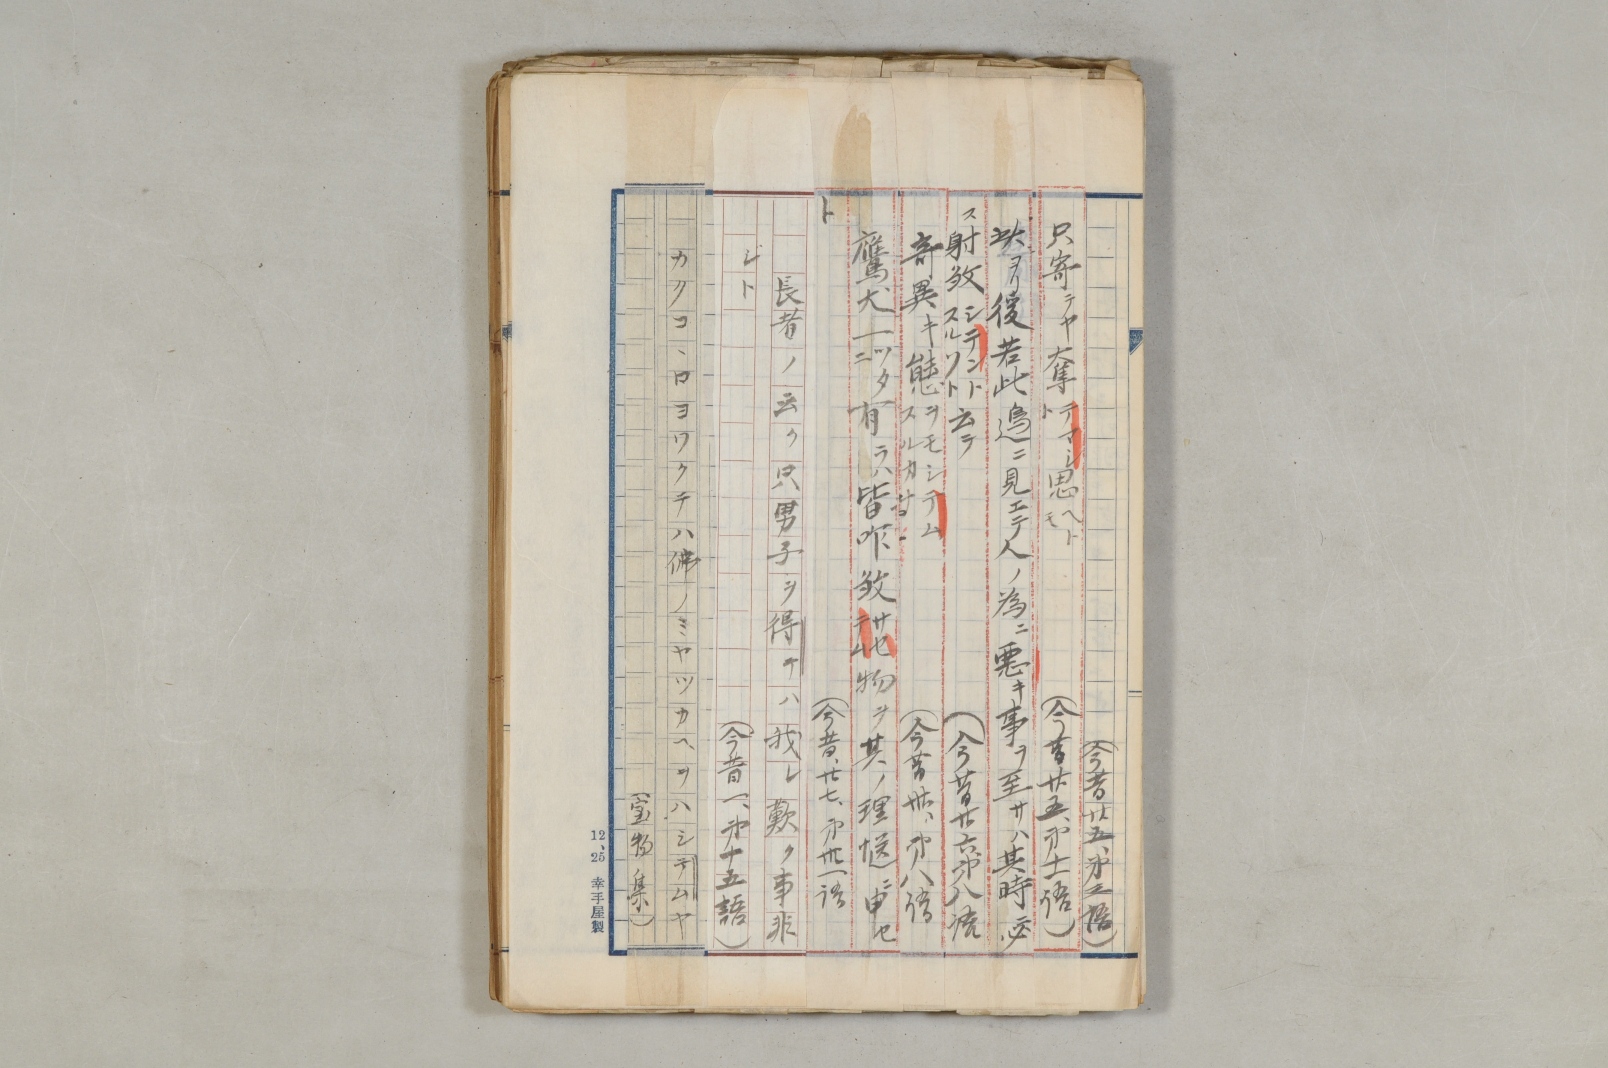 (今昔廿五、第三語)
只寄テヤ奪テマシト思ヘトモ
(今昔廿五、第十二語)
然ヲ後若此邊ニ見エテ人ノ為ニ悪キ事ヲ至サハ其時必
ス射殺シテントスルソト云テ
(今昔廿六、第八語
奇異キ態ヲモシテムスルカナ
(今昔廿、第八語
鷹犬一ツニタ有ラハ皆咋殺サセテム此物ヲ其ノ理慥ニ申セ
ト
(今昔、廿七、第廿一語
長者ノ云ク只男子ヲ得テハ我レ歎ク事非
シト
(今昔一、第十五語)
カクコヽロヨワクテハ佛ノミヤツカヘヲハシテムヤ
(宝物集)
12、25 幸手屋製